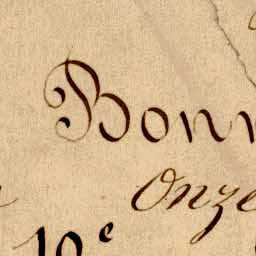 Bonn
Onze
19e